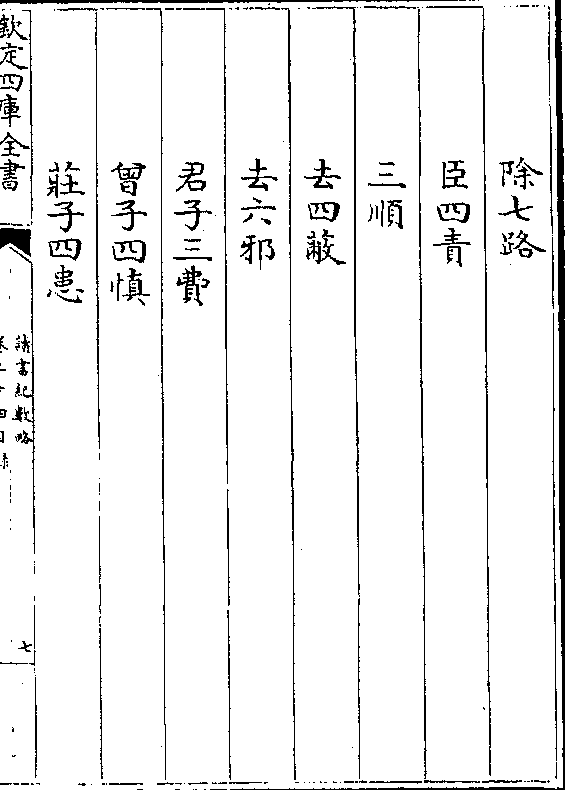 除七路
臣四責
三順
去四蔽
去六邪
君子三費
曾子四慎
莊子四患
欽定四庫全書
諸書紀數略
卷二十四目錄
七